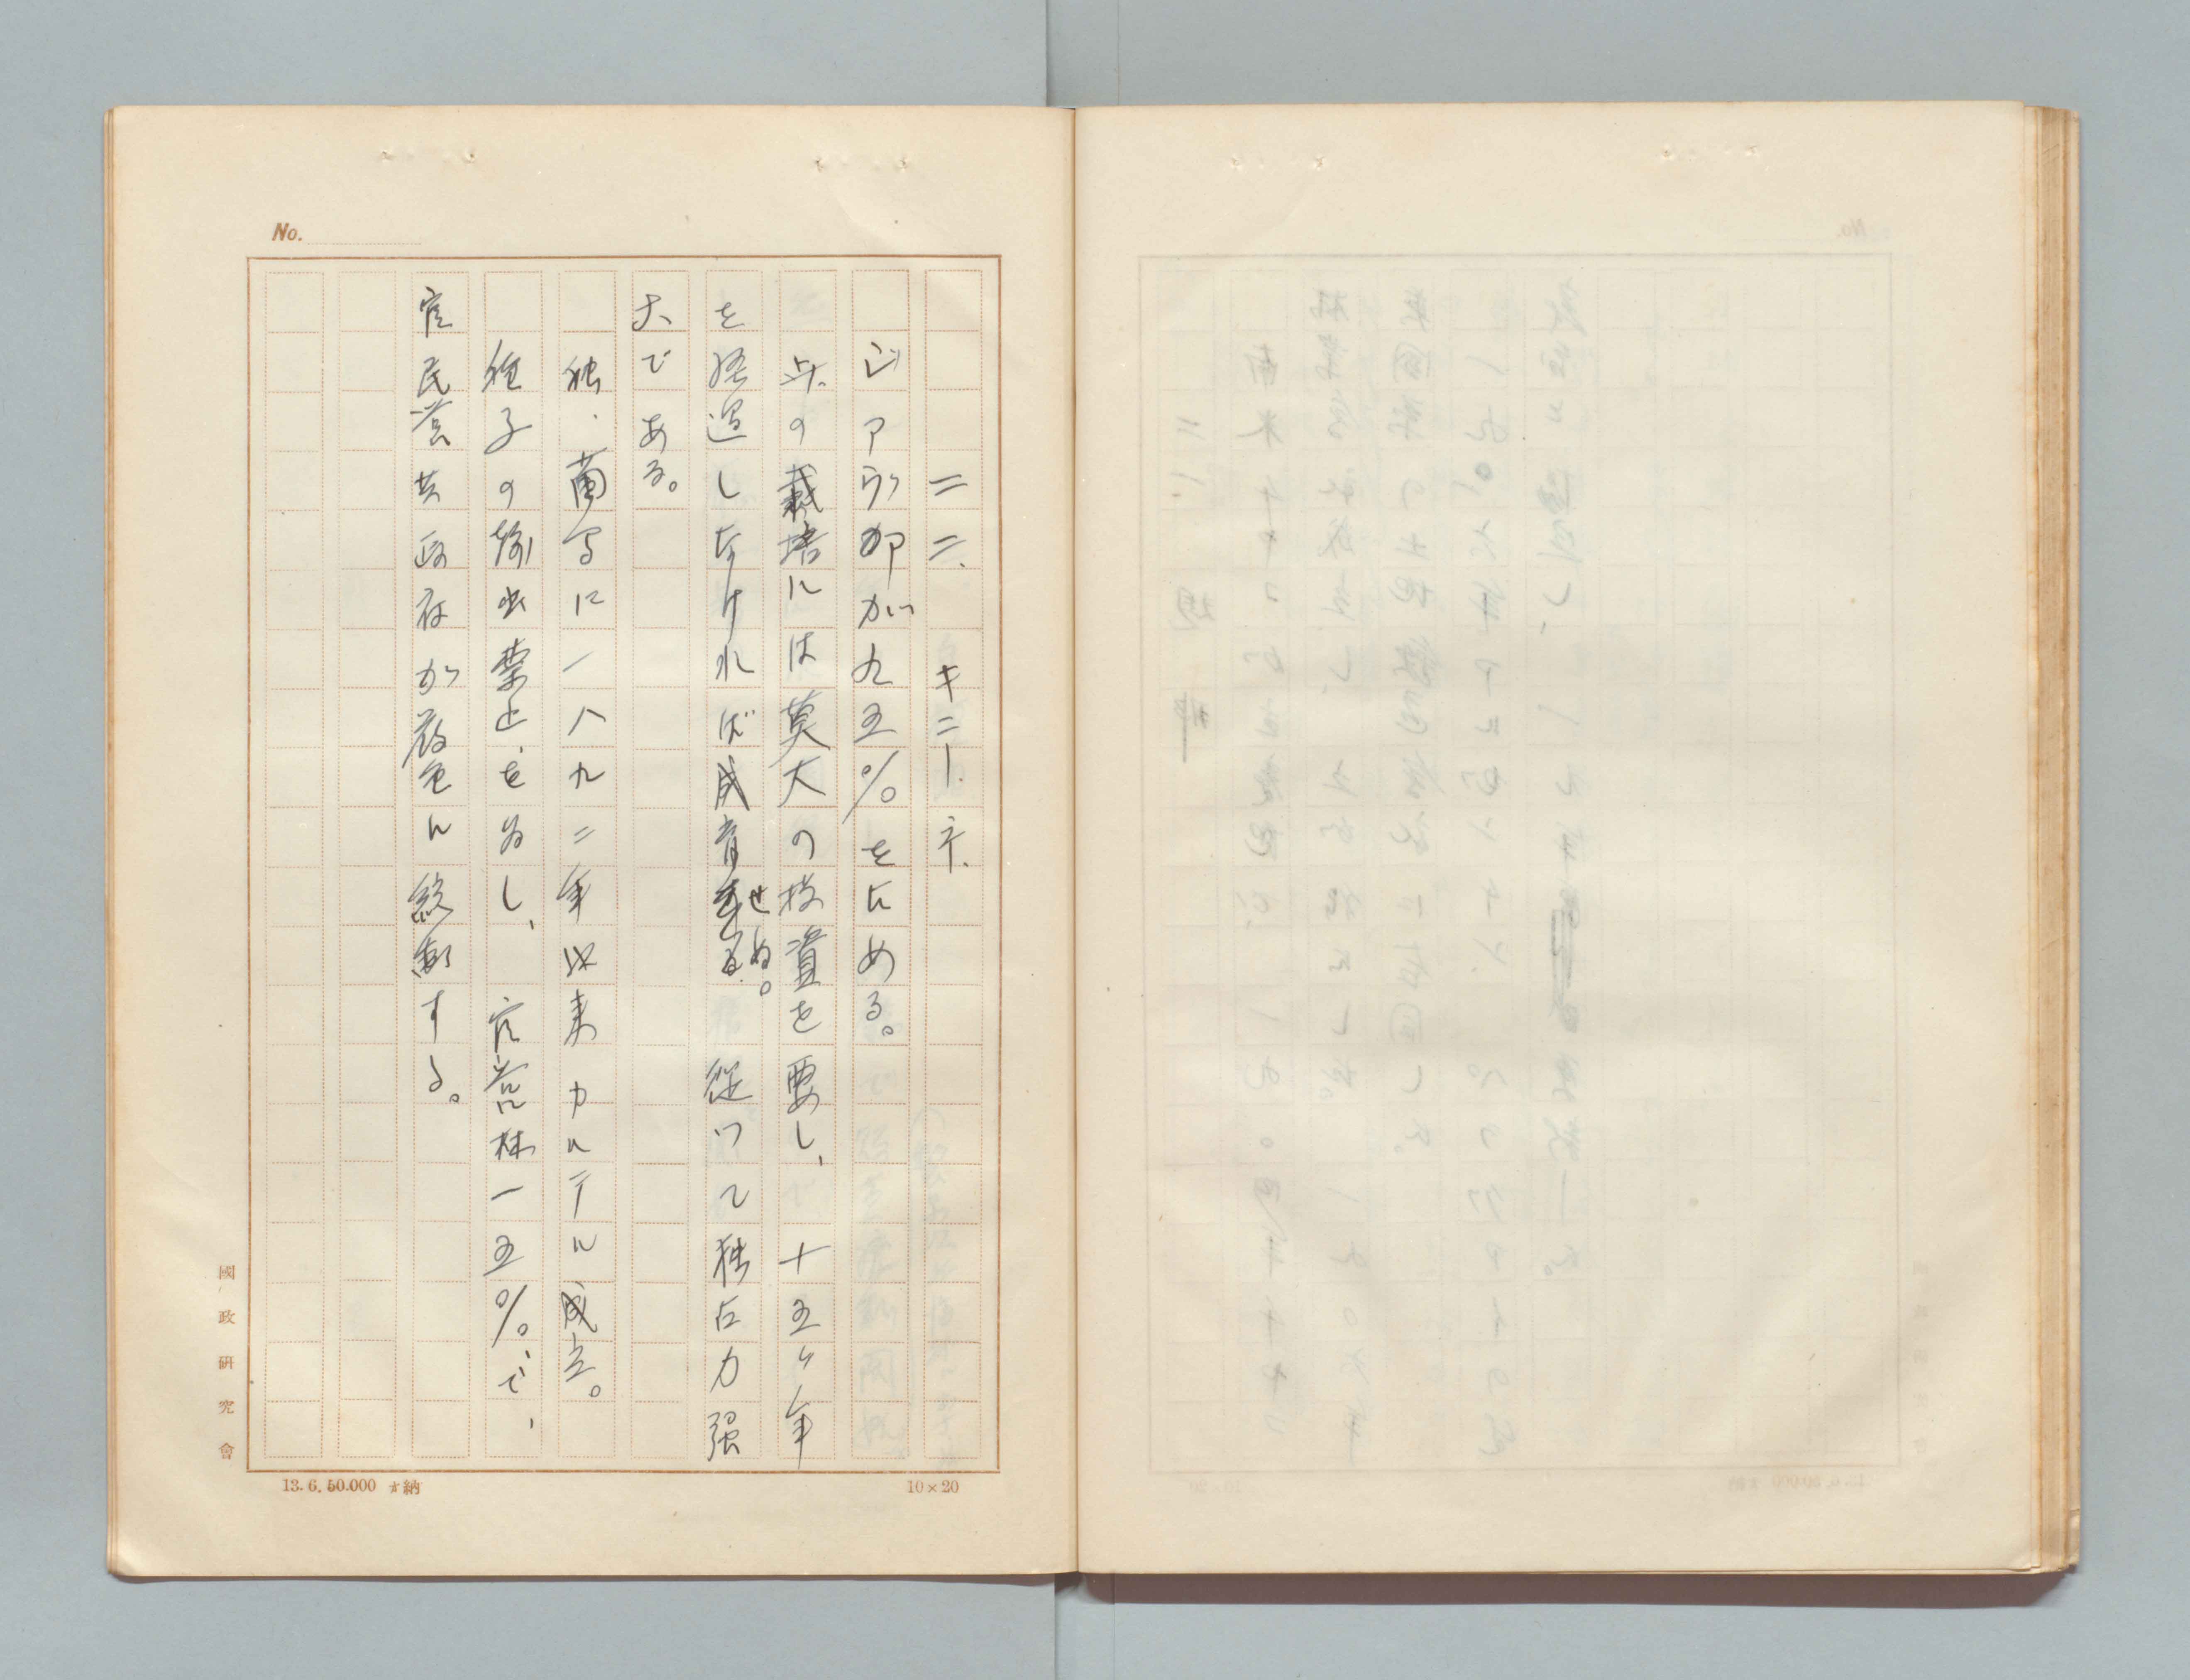 No.
二二、キニーネ、
ジアヴァ卯が九五%を占める。
此の栽培には莫大の投資を要し、十五ヶ年
を経過しなければ成育せぬ。従つて独占力强
大である。
独・蘭等に一八九二年以来カルテル成立。
種子の輸出禁止を為し、官営林一五%で、
官民営共政府が厳色に統制する。
國政研究會
13. 6. 50.000 ォ納
10×20